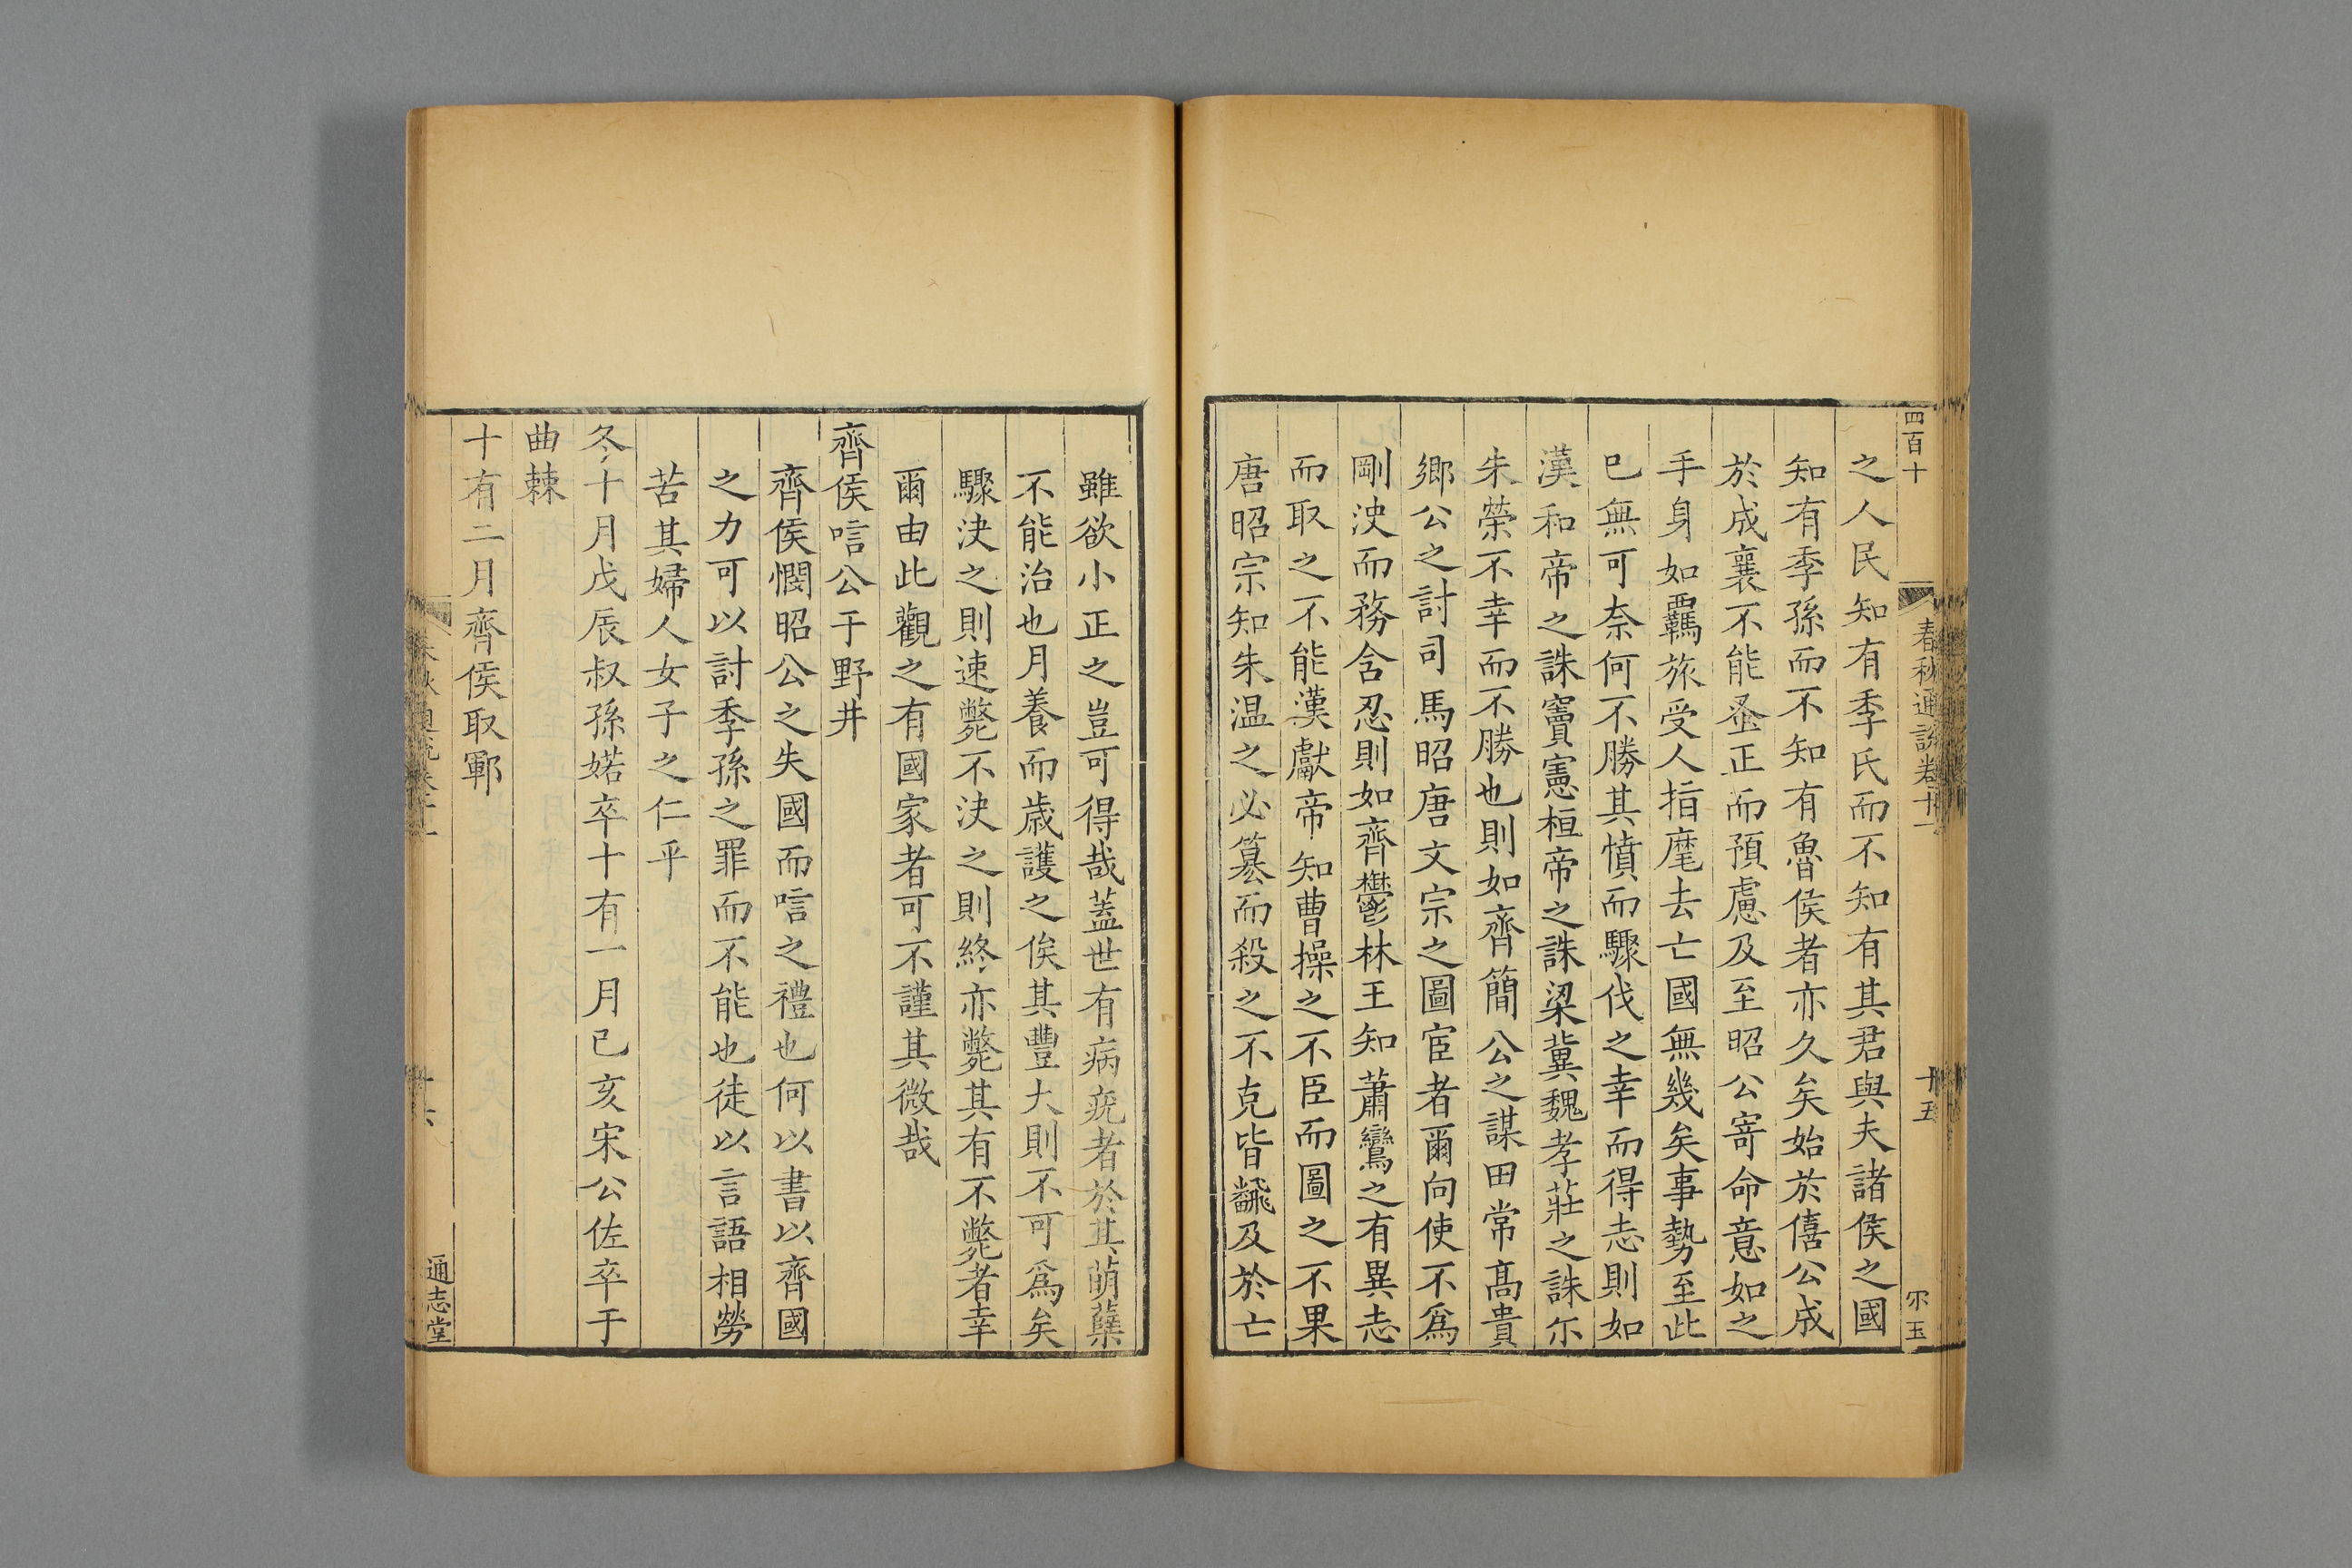 四百十
春秋通說卷十一
十五
尔玉
之人民知有季氏而不知有其君與夫諸侯之國
知有季孫而不知有魯侯者亦久矣始於僖公成
於成襄不能蚤正而預慮及至昭公寄命意如之
手身如羈旅受人指麾去亡國無幾矣事勢至此
巳無可奈何不勝其憤而驟伐之幸而得志則如
漢和帝之誅竇憲桓帝之誅梁冀魏孝莊之誅尒
朱榮不幸而不勝也則如齊簡公之謀田常髙貴
鄉公之討司馬昭唐文宗之圖宦者爾向使不爲
剛決而務含忍則如齊鬱林王知蕭鸞之有異志
而取之不能漢獻帝知曹操之不臣而圖之不果
唐昭宗知朱温之必簒而殺之不克皆飜及於亡
雖欲小正之豈可得哉蓋世有病疣者於其萌蘖
不能治也月養而歳護之俟其豐大則不可爲矣
驟決之則速斃不決之則終亦斃其有不斃者幸
爾由此觀之有國家者可不謹其微哉
齊侯唁公于野井
齊侯憫昭公之失國而唁之禮也何以書以齊國
之力可以討季孫之罪而不能也徒以言語相勞
苦其婦人女子之仁乎
冬十月戊辰叔孫婼卒十有一月已亥宋公佐卒于
曲棘
十有二月齊侯取鄆
春秋通說卷十一
十六
通志堂